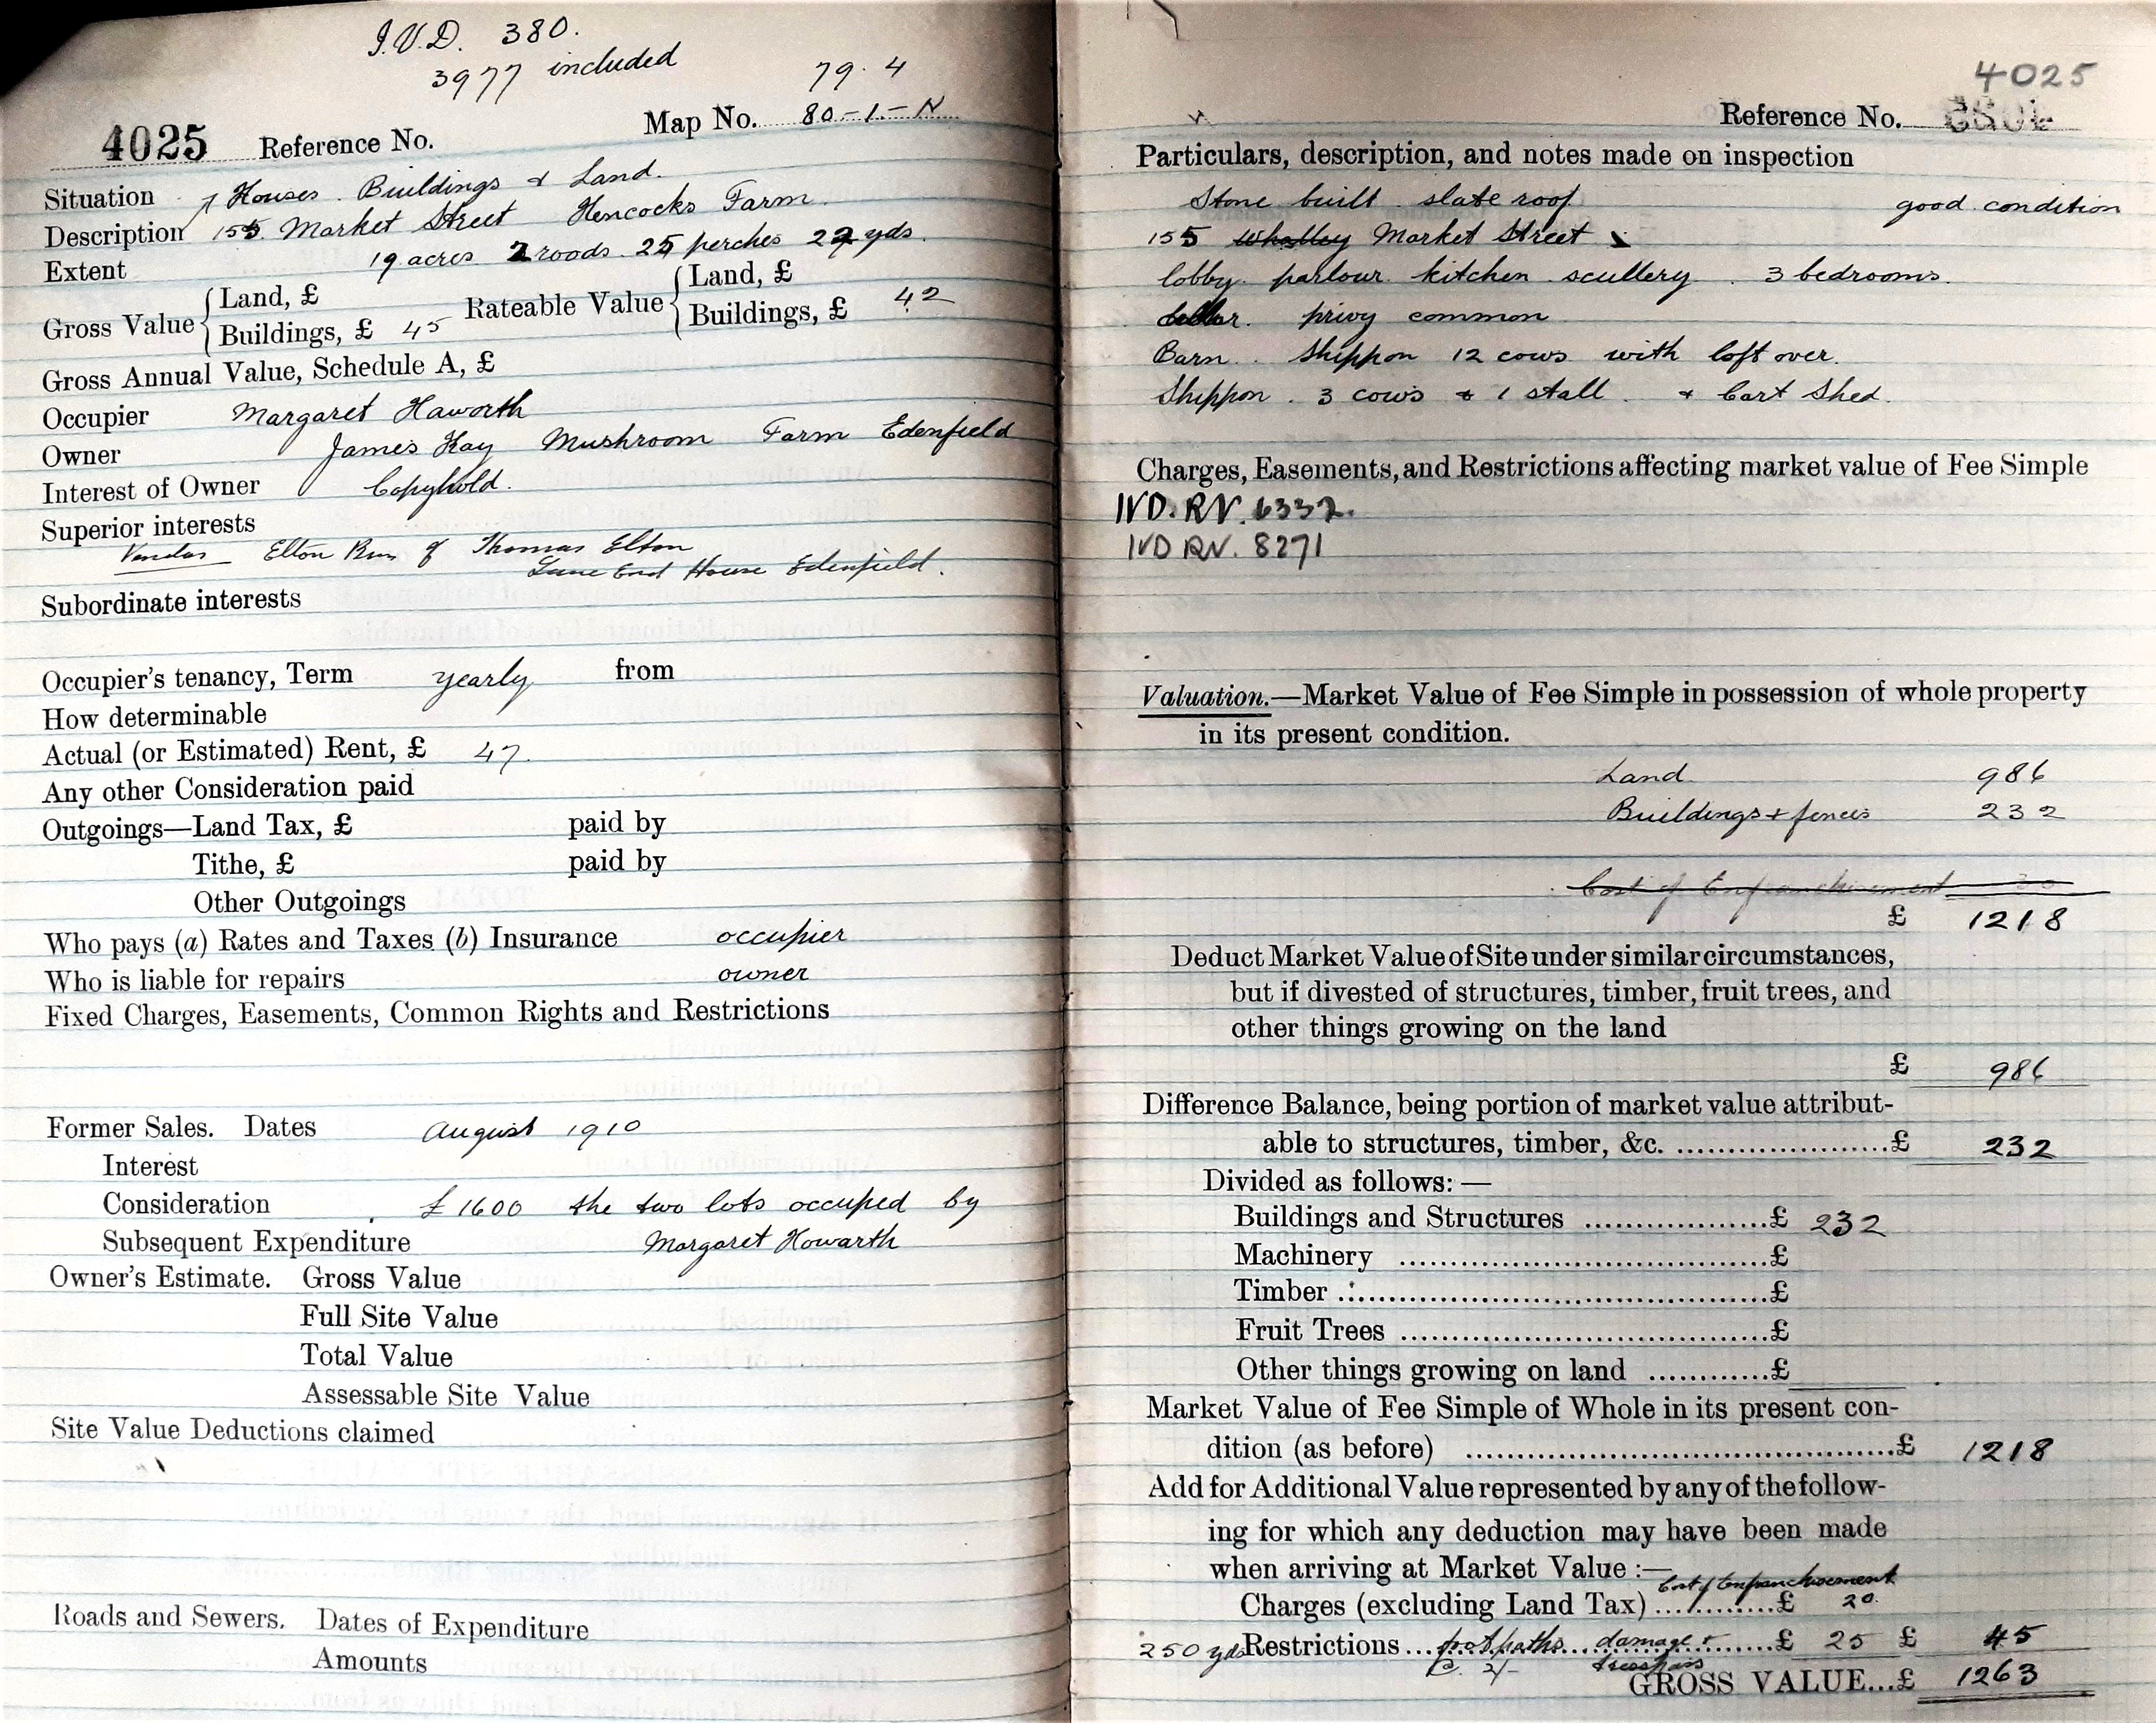 I.V.D. 380.
3977 included
79.4
4025 Reference No. Map No. 80-1-N
Situation Houses. Buildings & Land.
Description 155 Market Street Hencocks Farm.
Extent 19 acres 2 roods. 25 perches 22 yds.
Gross Value { Land, £ Rateable Value { Land, £
Buildings, £ 45 Buildings, £ 42
Gross Annual Value, Schedule A, £
Occupier Margaret Haworth
Owner James Kay Mushroom Farm Edenfield
Interest of Owner Copyhold.
Superior interests
Vendor Elton of Thomas Elton
Lane End House Edenfield.
Subordinate interests
Occupier's tenancy, Term yearly from
How determinable
Actual (or Estimated) Rent, £ 47.
Any other Consideration paid
Outgoings—Land Tax, £ paid by
Tithe, £ paid by
Other Outgoings
Who pays (a) Rates and Taxes (b) Insurance occupier
Who is liable for repairs owner
Fixed Charges, Easements, Common Rights and Restrictions
Former Sales. Dates August 1910
Interest
Consideration £1600 the two lots occupied by
Subsequent Expenditure Margaret Howarth
Owner's Estimate. Gross Value
Full Site Value
Total Value
Assessable Site Value
Site Value Deductions claimed
Roads and Sewers. Dates of Expenditure
Amounts
4025
Reference No.
Particulars, description, and notes made on inspection
Stone built slate roof good condition
155 Whalley Market Street
lobby parlour kitchen scullery. 3 bedrooms.
privy common
Barn. Shippon 12 cows with loft over.
Shippon. 3 cows & 1 stall. & Cart Shed.
Charges, Easements, and Restrictions affecting market value of Fee Simple
IVD. RV. 6332.
IVD RV. 8271
Valuation.—Market Value of Fee Simple in possession of whole property
in its present condition.
Land 986
Buildings & fences 232
Cost of Enfranchisement
£ 1218
Deduct Market Value of Site under similar circumstances,
but if divested of structures, timber, fruit trees, and
other things growing on the land
£ 986
Difference Balance, being portion of market value attribut-
able to structures, timber, &c. ......................£ 232
Divided as follows: —
Buildings and Structures ....................£ 232
Machinery ........................................£
Timber ..............................................£
Fruit Trees ........................................£
Other things growing on land ............£
Market Value of Fee Simple of Whole in its present con-
dition (as before) ..............................................£ 1218
Add for Additional Value represented by any of the follow-
ing for which any deduction may have been made
when arriving at Market Value :—
Cost of Enfranchisement
Charges (excluding Land Tax) ..............£ 20.
250 yds Restrictions ... footpaths damage & ......£ 25 £ 45
@ 2/- trespass
GROSS VALUE...£ 1263